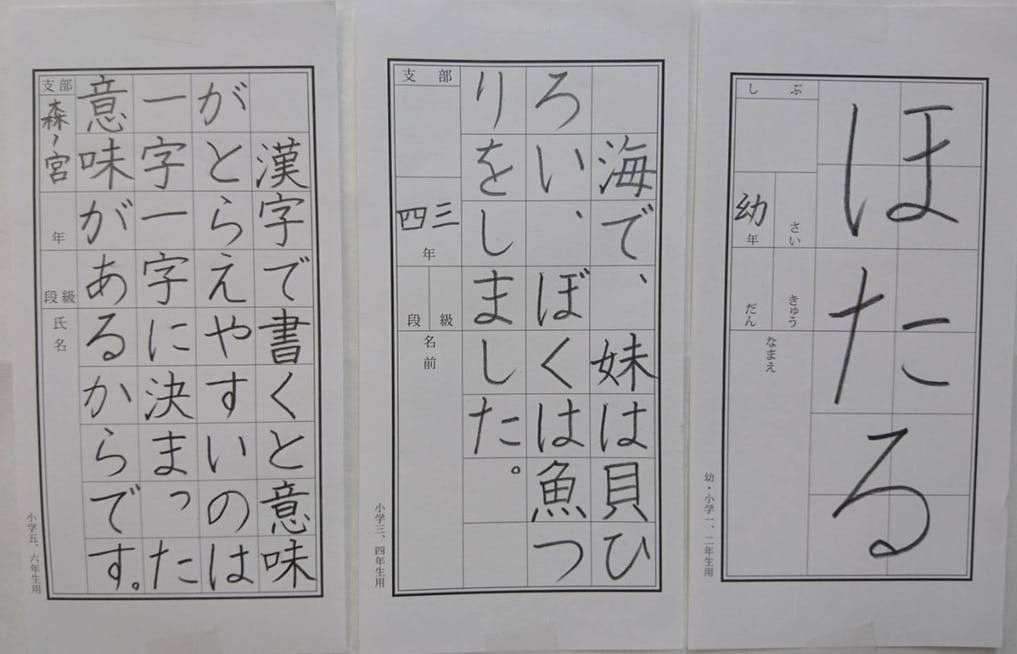 ほたる
しぶ
幼年
さい
きゅう
だん
なまえ
幼・小学一、二年生用
海で、妹は貝ひ
ろい、ぼくは魚つ
りをしました。
支部
三四年
級
段
名前
小学三、四年生用
漢字で書くと意味
がとらえやすいのは
一字一字に決まった
意味があるからです。
支部
森ノ宮
年
段級
氏名
小学五、六年生用